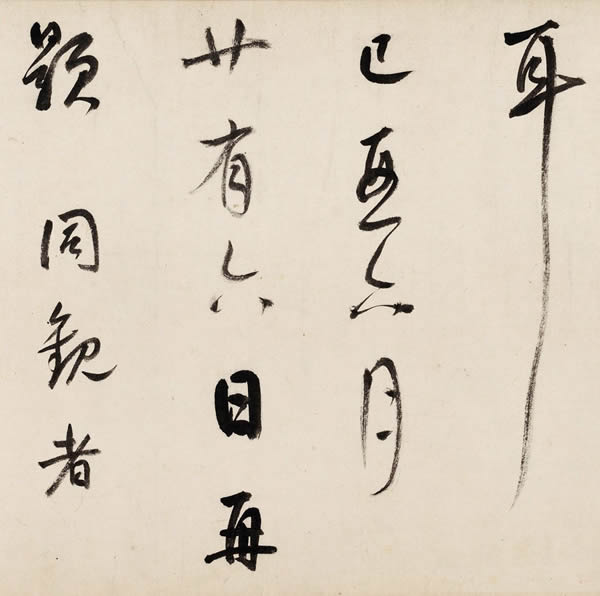 耳
己六月
廿有六日再
題 同觀者